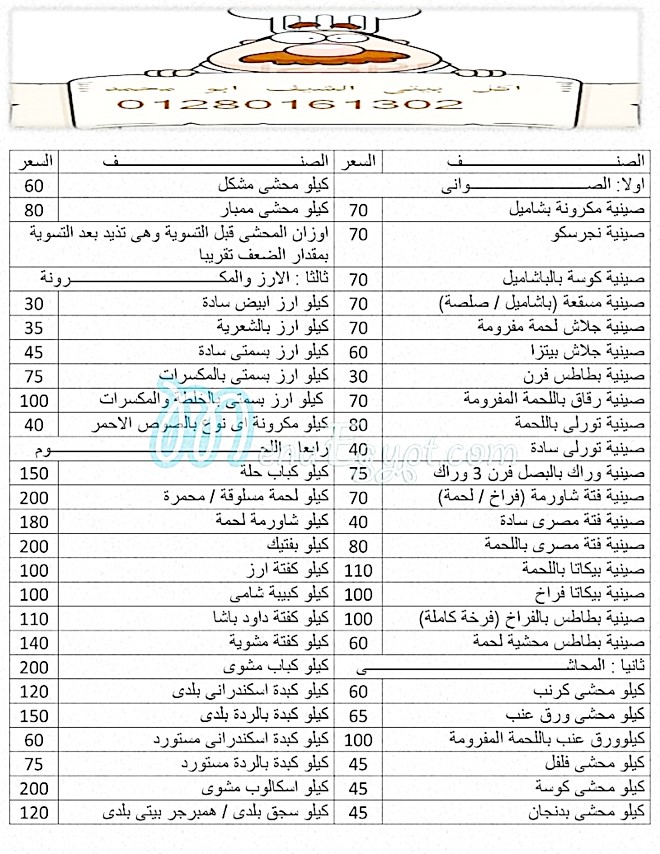 اكل بيتى الشيف ابو محمد
01280161302
الصنــــــــف السعر
اولا: الصــــــــوانى
صينية مكرونة بشاميل 70
صينية نجرسكو 70
صينية كوسة بالباشاميل 70
صينية مسقعة (باشاميل / صلصة) 70
صينية جلاش لحمة مفرومة 70
صينية جلاش بيتزا 60
صينية بطاطس فرن 30
صينية رقاق باللحمة المفرومة 70
صينية تورلى باللحمة 80
صينية تورلى سادة 40
صينية وراك بالبصل فرن 3 وراك 75
صينية فتة شاورمة (فراخ / لحمة) 70
صينية فتة مصرى سادة 40
صينية فتة مصرى باللحمة 80
صينية بيكاتا باللحمة 110
صينية بيكاتا فراخ 100
صينية بطاطس بالفراخ (فرخة كاملة) 100
صينية بطاطس محشية لحمة 60
ثانيا : المحاشــــــــى
كيلو محشى كرنب 60
كيلو محشى ورق عنب 65
كيلوورق عنب باللحمة المفرومة 100
كيلو محشى فلفل 45
كيلو محشى كوسة 45
كيلو محشى بدنجان 45
الصنــــــــف السعر
كيلو محشى مشكل 60
كيلو محشى ممبار 80
اوزان المحشى قبل التسوية وهى تذيد بعد التسوية
بمقدار الضعف تقريبا
ثالثا : الارز والمكــــــــرونة
كيلو ارز ابيض سادة 30
كيلو ارز بالشعرية 35
كيلو ارز بسمتى سادة 45
كيلو ارز بسمتى بالمكسرات 75
كيلو ارز بسمتى بالخلطة والمكسرات 100
كيلو مكرونة اى نوع بالصوص الاحمر 40
رابعا : اللحــــــــوم
كيلو كباب حلة 150
كيلو لحمة مسلوقة / محمرة 200
كيلو شاورمة لحمة 180
كيلو بفتيك 200
كيلو كفتة ارز 100
كيلو كبيبة شامى 100
كيلو كفتة داود باشا 110
كيلو كفتة مشوية 140
كيلو كباب مشوى 200
كيلو كبدة اسكندرانى بلدى 120
كيلو كبدة بالردة بلدى 150
كيلو كبدة اسكندرانى مستورد 60
كيلو كبدة بالردة مستورد 75
كيلو اسكالوب مشوى 200
كيلو سجق بلدى / همبرجر بيتى بلدى 120
MenuEgypt.com